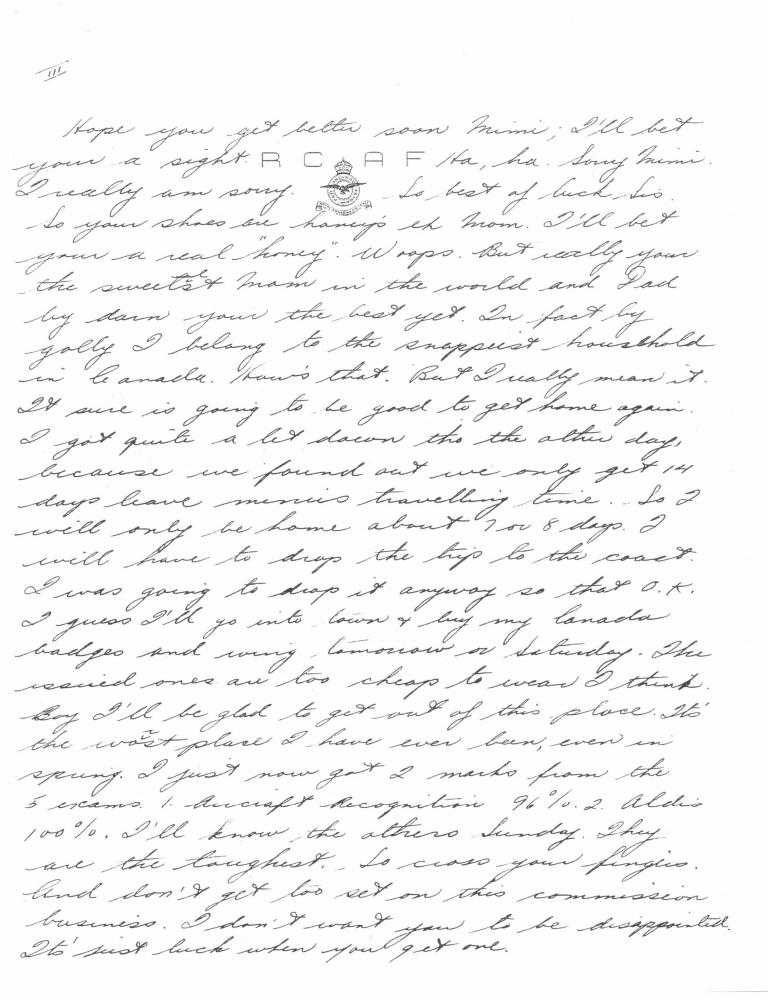 III
Hope you get better soon Mimi; I'll bet
your a sight. R C A F Ha, ha. Sorry Mimi.
I really am sorry. So best of luck Sis.
So your shoes are honey's eh Mom. I'll bet
your a real "honey". Woops. But really your
the sweetest Mom in the world and Dad
by darn your the best yet. In fact by
golly I belong to the snappiest household
in Canada. How's that. But I really mean it.
It sure is going to be good to get home again.
I got quite a let down tho the other day,
because we found out we only get 14
days leave minus travelling time. So I
will only be home about 7 or 8 days. I
will have to drop the trip to the coast.
I was going to drop it anyway so that O.K.
I guess I'll go into town & buy my Canada
badges and wing tomorrow or Saturday. The
issued ones are too cheap to wear I think.
Boy I'll be glad to get out of this place. It's
the worst place I have ever been, even in
spring. I just now got 2 marks from the
5 exams. 1. Aircraft Recognition 96%. 2. Aldis
100%. I'll know the others Sunday. They
are the toughest. So cross your fingers.
And don't get too set on this commission
business. I don't want you to be disappointed.
It's just luck when you get one.